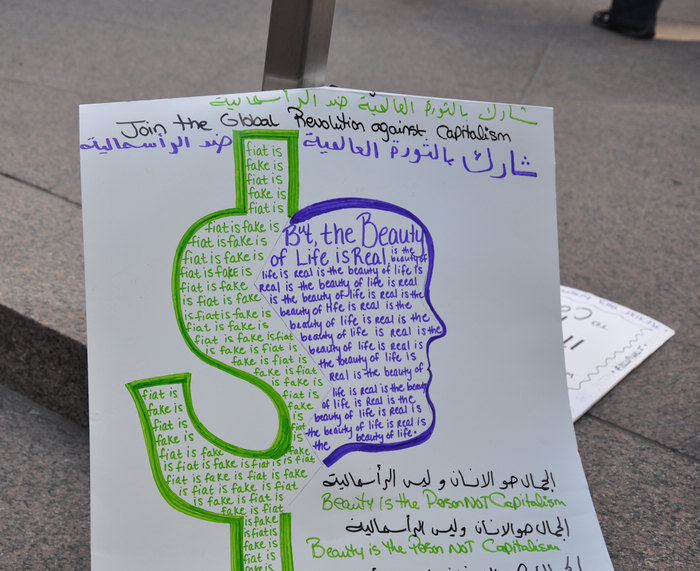 شارك بالثورة العالمية ضد الرأسمالية
Join the Global Revolution against Capitalism
شارك بالثورة العالمية ضد الرأسمالية
fiat is
fake is
fiat is
fake is
fiat is
fiat is fake is
fiat is fake is
fiat is fake is
fiat is fake is
fiat is fake
is fiat is fake
is fiat is fake is
fiat is fake is
fiat is fake is
fake is fiat is fiat
is fake is fiat
fake is fiat is
fake is fiat
is fake is
fiat is
fake
is
fiat
fake is
fiat is
fake is
fiat is
fake is
fiat is
fake is
fiat is fake
is fiat is fake is fiat is fiat
is fake is fiat is fake is
fiat is fake is fiat
is fake is fiat
is fake
fiat is
fake is
fiat is
fake is
But, the Beauty
of Life is Real
is the
beauty of
life is real is the beauty of life is
real is the beauty of life is real
is the beauty of life is real is the
beauty of life is real is the
beauty of life is real is
beauty of life is real is the
beauty of life is real is
the beauty of life is
real is the beauty of
life is real is the beauty
of life is Real is the
beauty of life is real is
the beauty of life is real is
the beauty of life.
الجمال هو الانسان وليس الرأسمالية
Beauty is the Person NOT Capitalism
الجمال هو الانسان وليس الرأسمالية
Beauty is the Person NOT Capitalism
TO